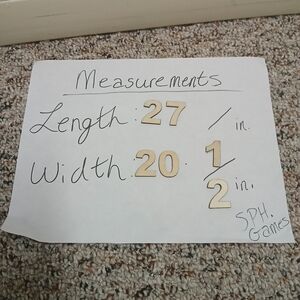 Measurements
Length: 27 / in.
Width: 20. 1/2 in.
SPH.
Games